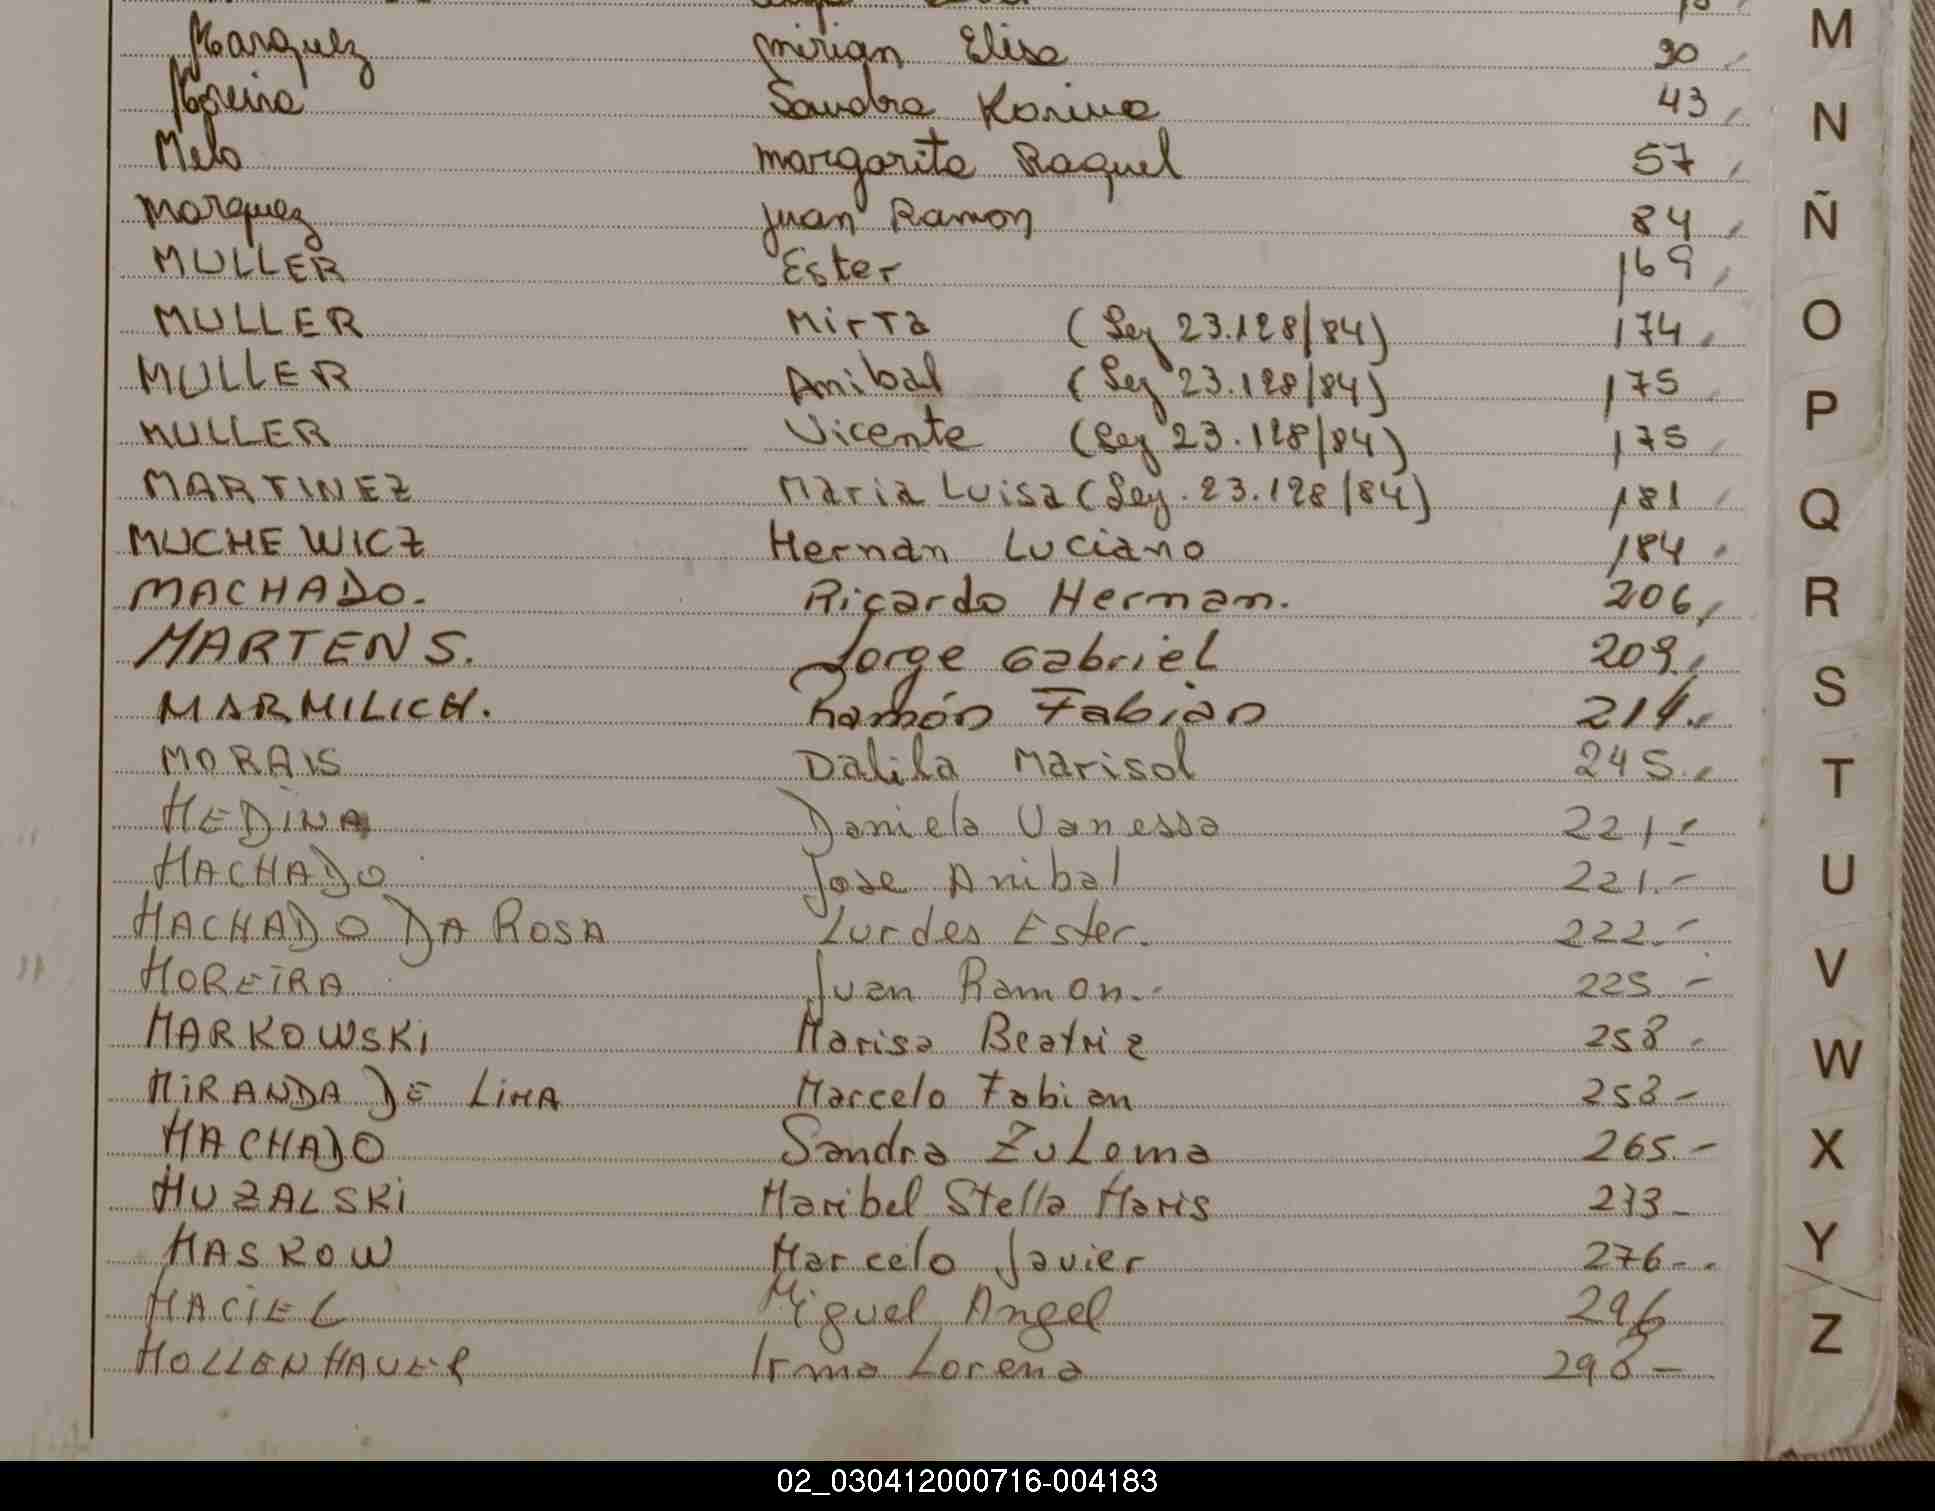 Marquez Mirian Elisa 30
Moreira Sandra Karina 43
Melo Margarita Raquel 57
Marquez Juan Ramon 84
MULLER Ester 169
MULLER Mirta (Ley 23.128/84) 174
MULLER Anibal (Ley 23.128/84) 175
MULLER Vicente (Ley 23.128/84) 175
MARTINEZ Maria Luisa (Ley. 23.128/84) 181
MUCHEWICZ Hernan Luciano 184
MACHADO. Ricardo Hernan. 206
MARTENS. Jorge Gabriel 209
MARMILICH. Ramón Fabian 214
MORAIS Dalila Marisol 245
MEDINA Daniela Vanessa 221.-
MACHADO Jose Anibal 221.-
MACHADO DA ROSA Lurdes Ester. 222.-
MOREIRA Juan Ramon.- 225.-
MARKOWSKI Marisa Beatriz 258-
MIRANDA DE LIMA Marcelo Fabian 258-
MACHADO Sandra Zulema 265.-
MUZALSKI Maribel Stella Maris 273-
MASKOW Marcelo Javier 276-.
MACIEL Miguel Angel 296
MOLLENHAUER Irma Lorena 298-
M
N
Ñ
O
P
Q
R
S
T
U
V
W
X
Y
Z
02_030412000716-004183